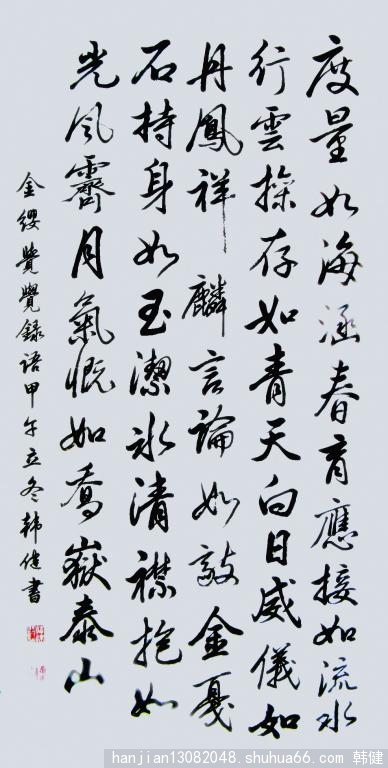 度量如海涵春育應接如流水
行雲操存如青天白日威儀如
丹鳳祥麟言論如敲金戛
石持身如玉潔冰清襟抱如
光風霽月氣慨如喬嶽泰山
金缨覺覺錄语甲午立冬韩健書
hanjian13082048.shuhua66.com 韩健